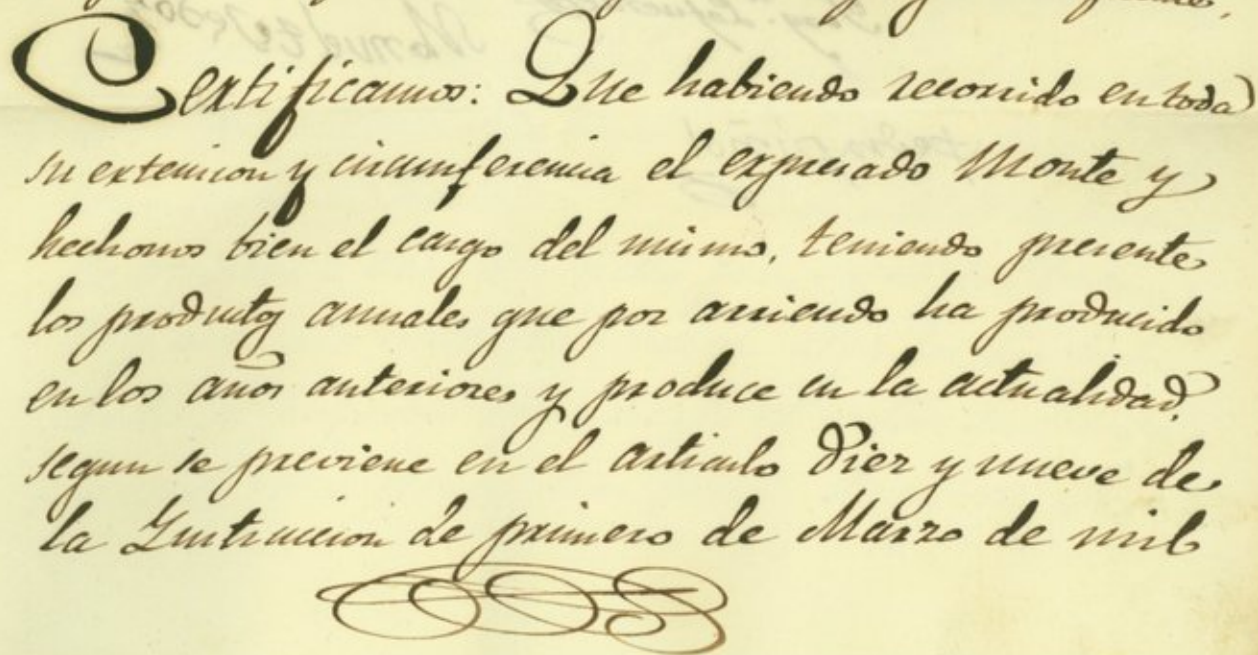 Certificamos: Que habiendo recorrido en toda
su extension y circumferencia el expresado Monte y
hechonos bien el cargo del mismo, teniendo presente
los productos anuales que por arriendo ha producido
en los años anteriores y produce en la actualidad,
segun se previene en el articulo Diez y nueve de
la Instruccion de primero de Marzo de mil